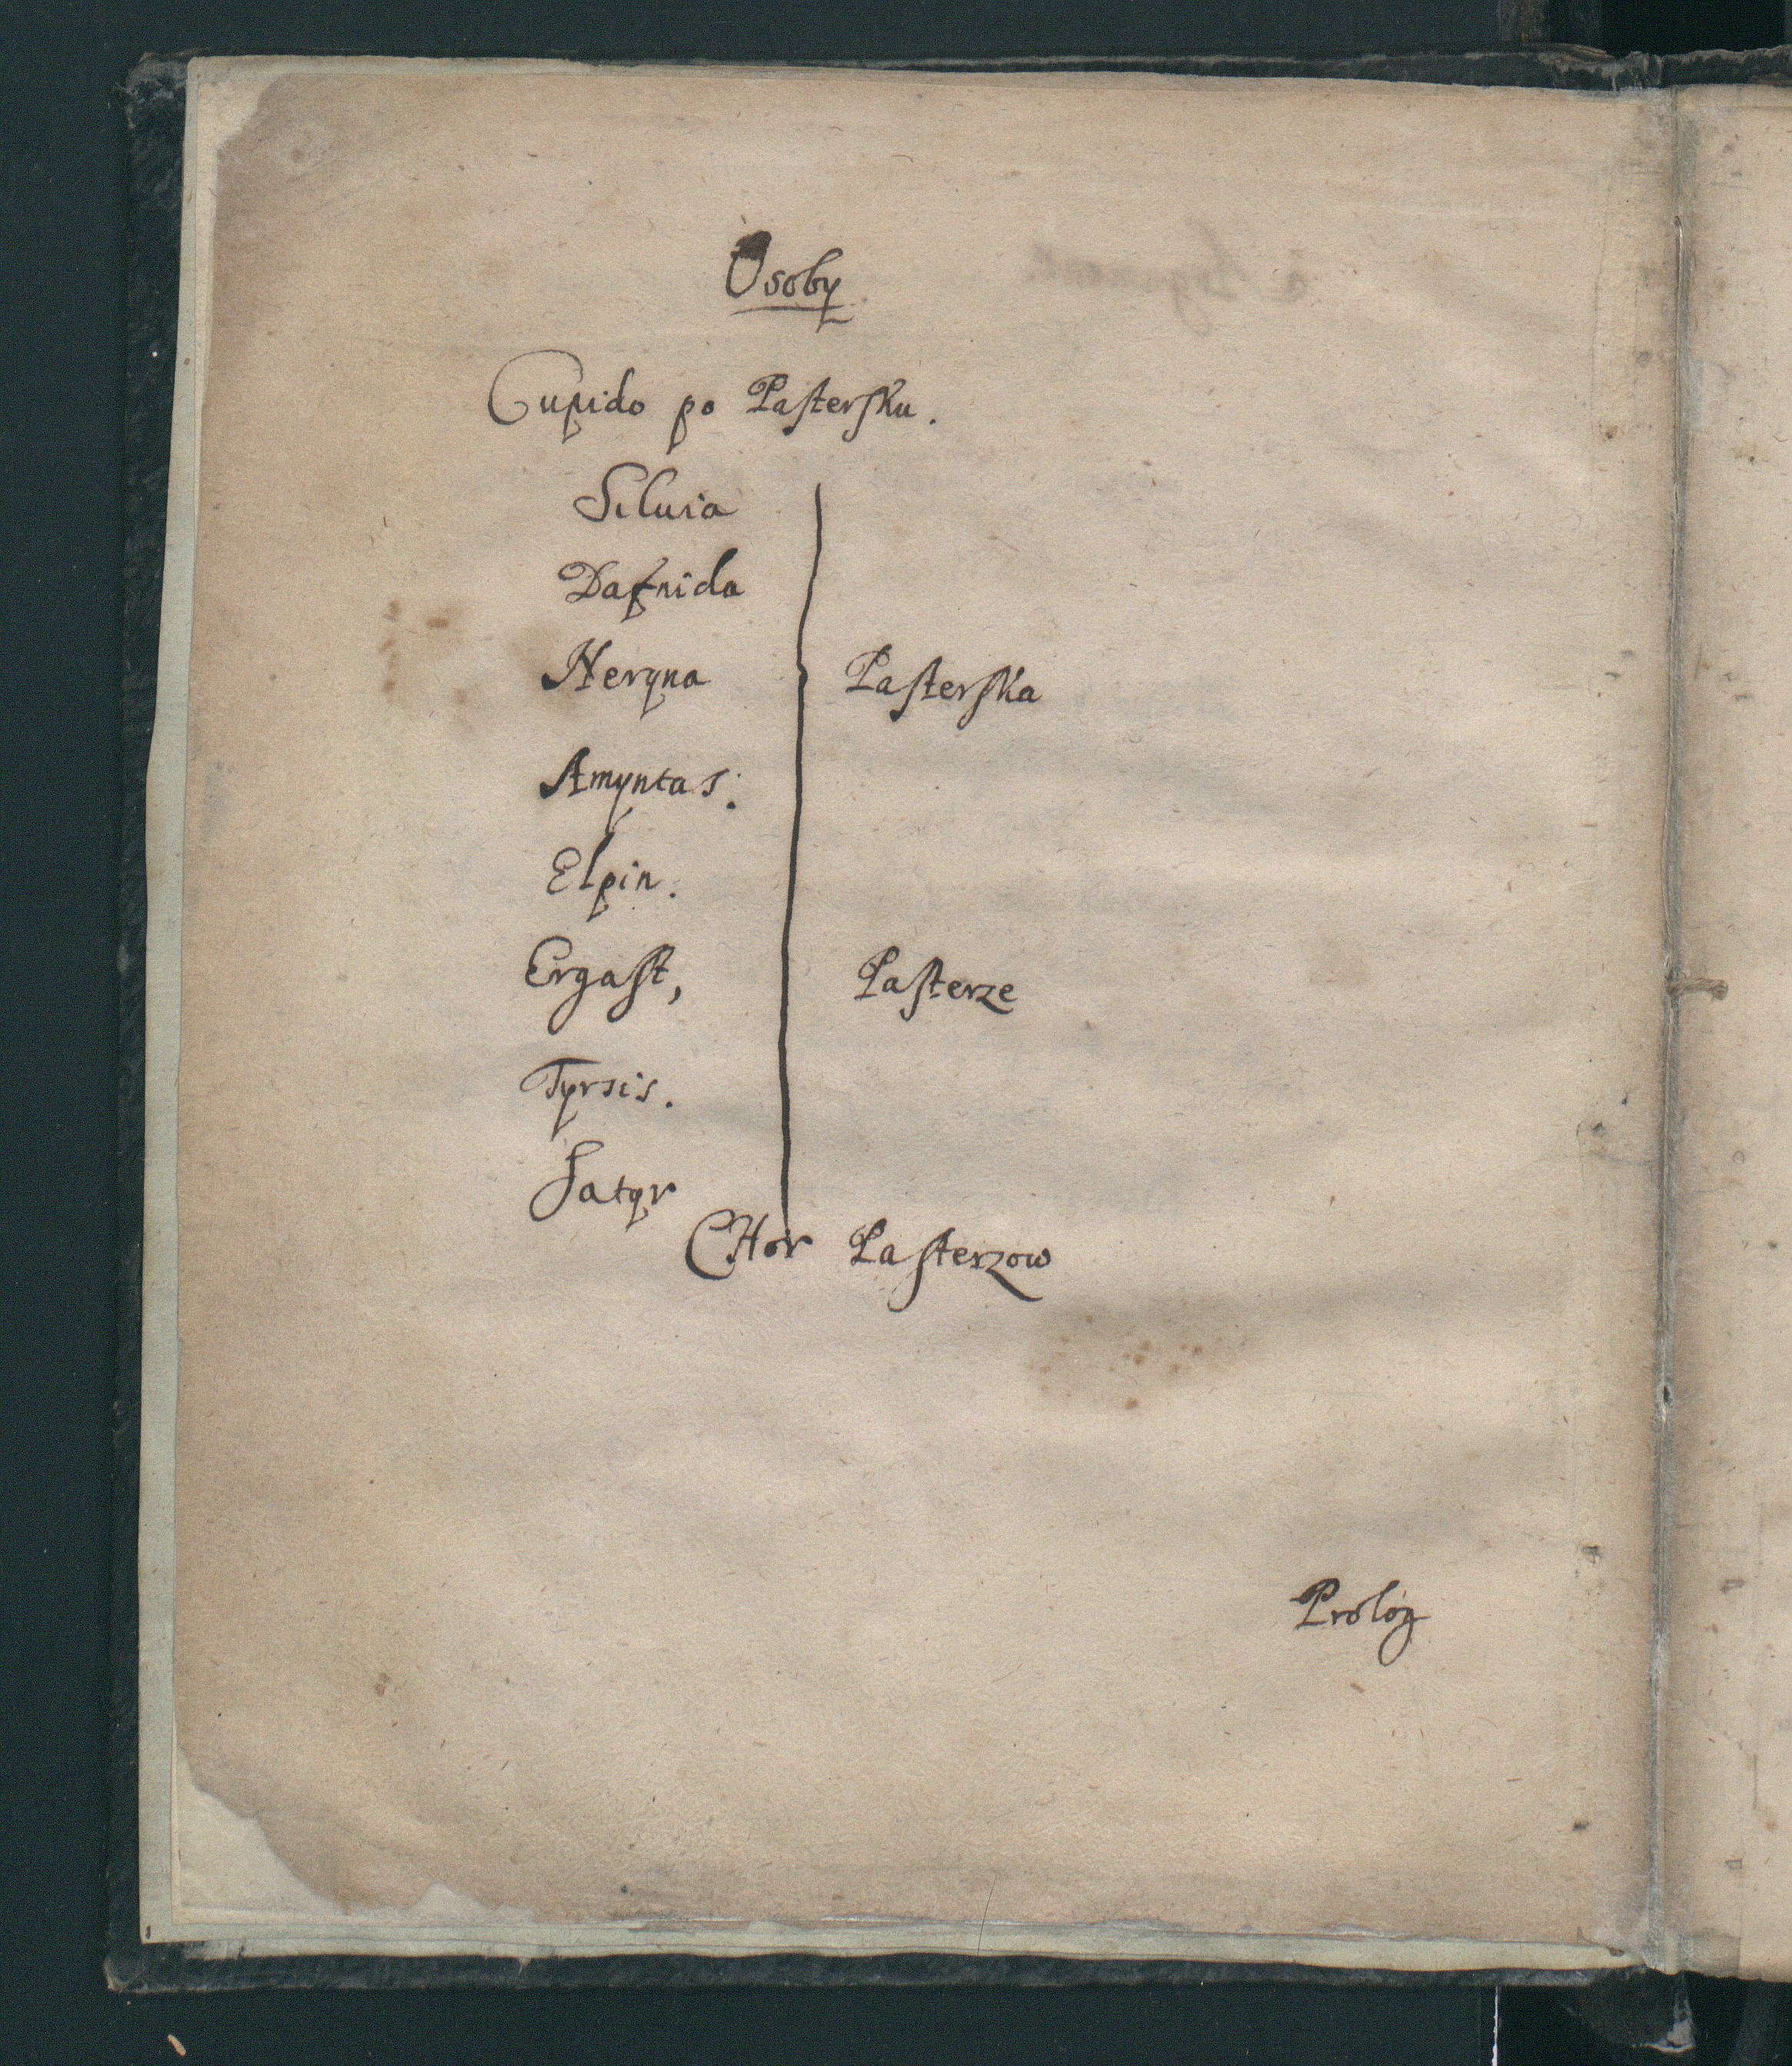 Osoby
Cupido po Pastersku.
Siluia
Dafnida
Neryna
Pasterska
Amyntas.
Elpin.
Ergast,
Pasterze
Tyrsis.
Satyr
CHor Pasterzow
Prolog